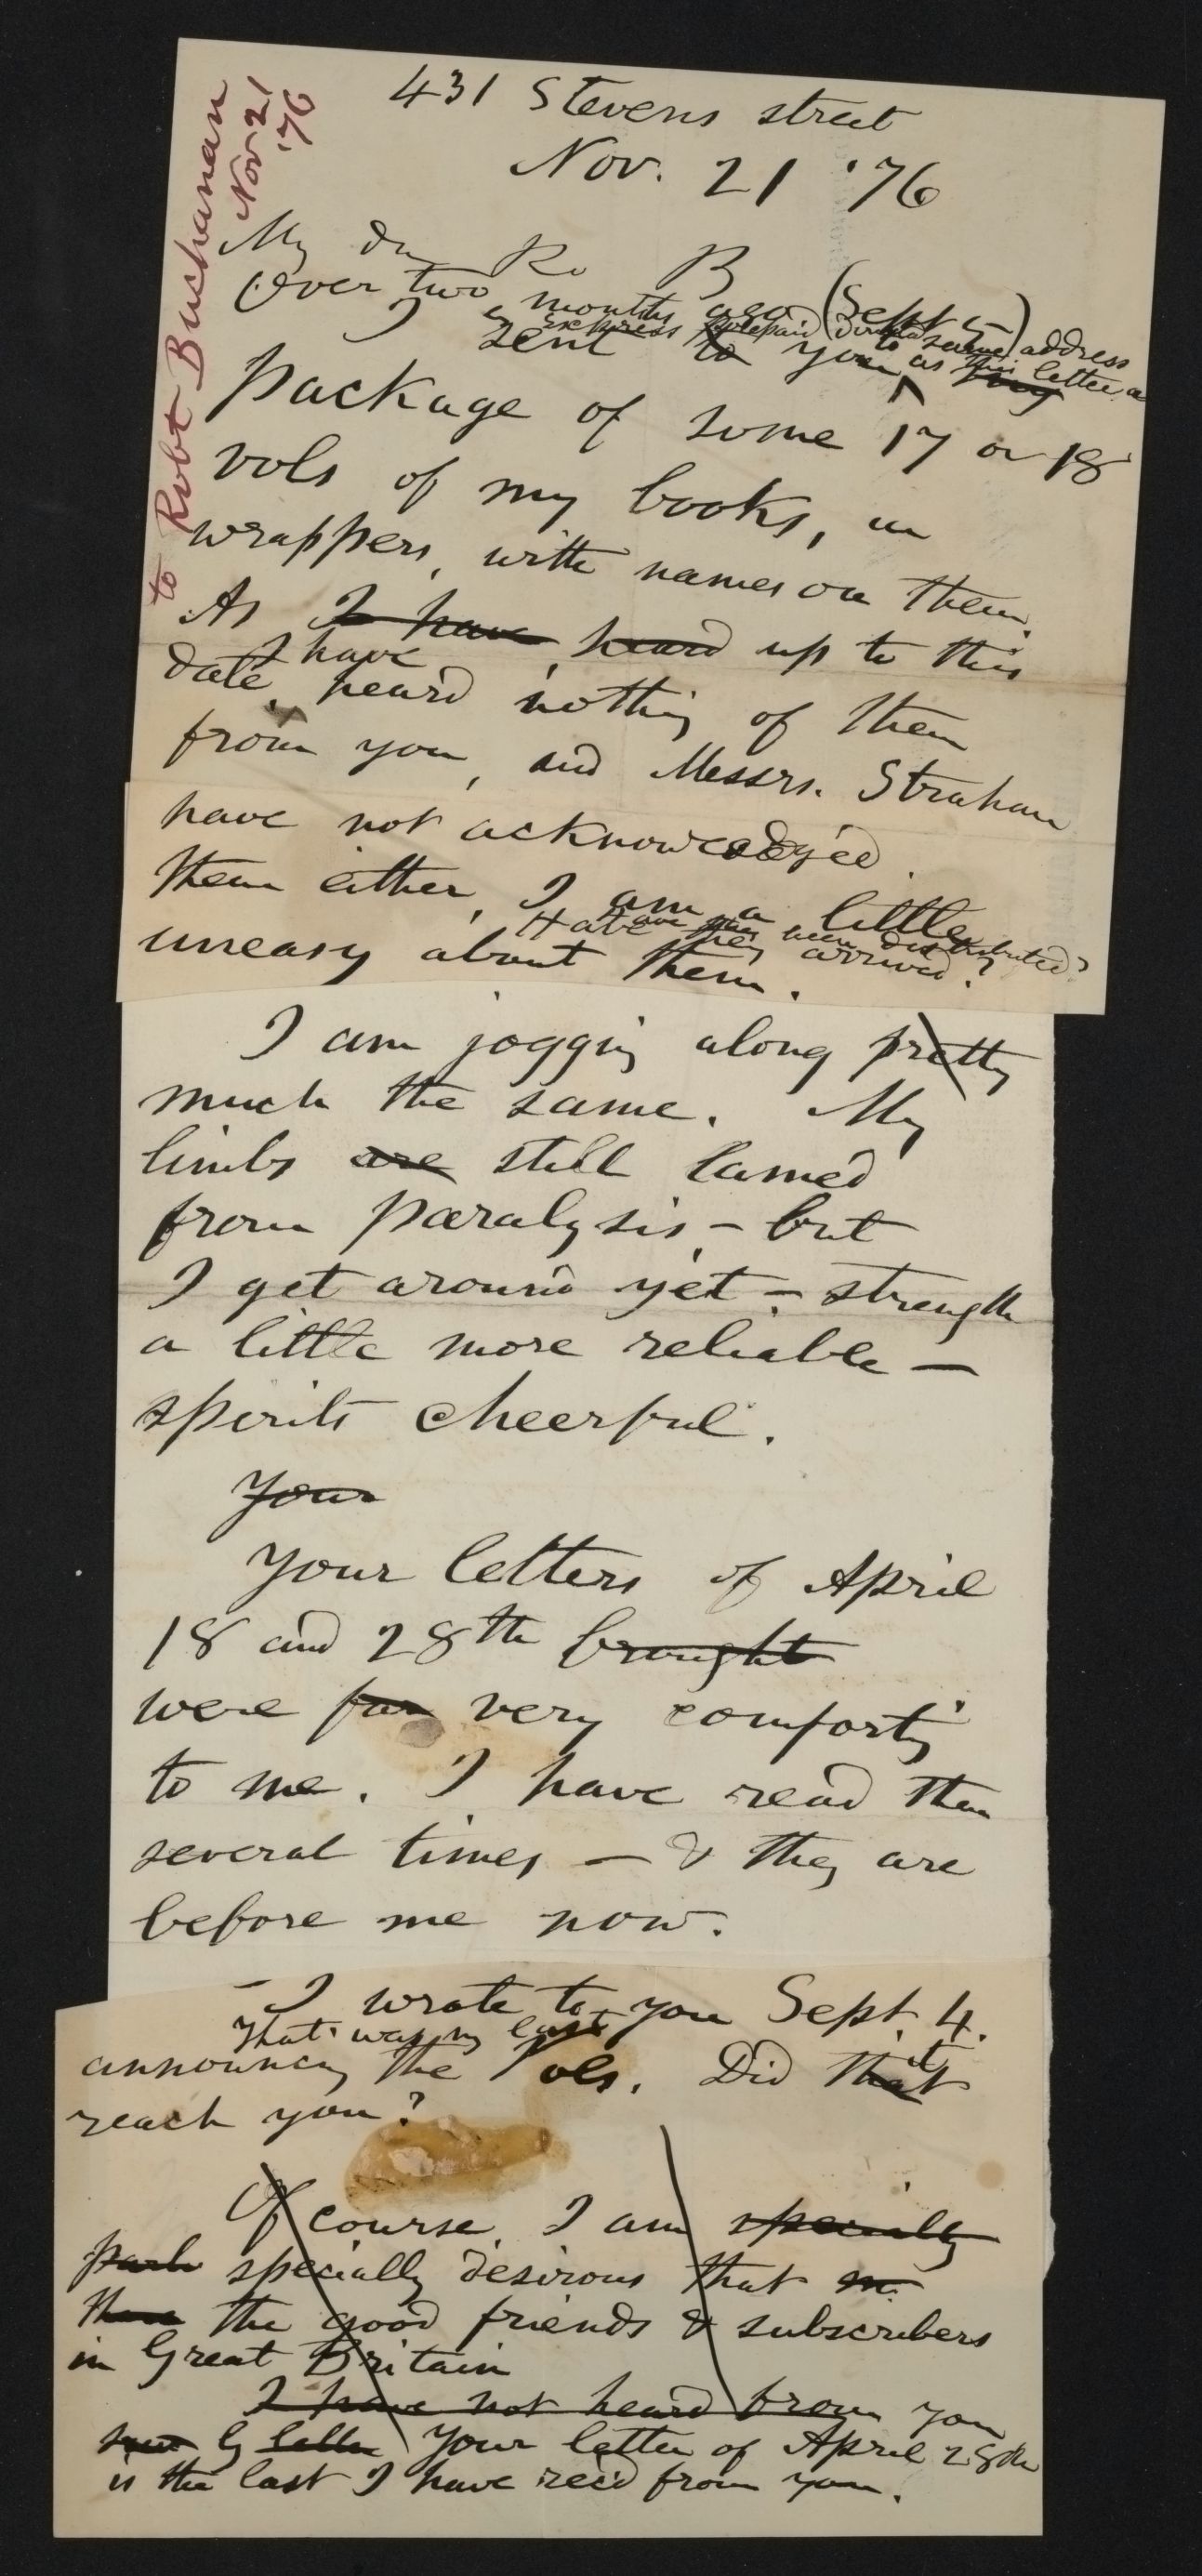 to Robt Buchanan
Nov 21
'76
431 Stevens street
Nov. 21 '76
My dr Ro B
Over two months ago (Sept 5)
by Express prepaid address
I sent to you as this letter a
package of some 17 or 18
vols of my books, in
wrappers, with names on them.
As I have heard up to this
I have
date, heard nothing of them
from you, and Messrs. Strahan
have not acknowledged
them either, I am a little
Have been distributed?
they arrived?
uneasy about them.
I am jogging along pretty
much the same. My
limbs are still lamed
from paralysis, – but
I get around yet – strength
a little more reliable –
spirits cheerful.
Your
Your letters of April
18 and 28th brought
were for very comforting
to me. I have read them
several times – & they are
before me now.
– I wrote to you Sept. 4.
That was my last
announcing the Vols. Did that
it
reach you?
Of course I am specially
specially desirous that
the good friends & subscribers
in Great Britain
I have not heard from you
letter Your letter of April 28th
is the last I have rec'd from you.